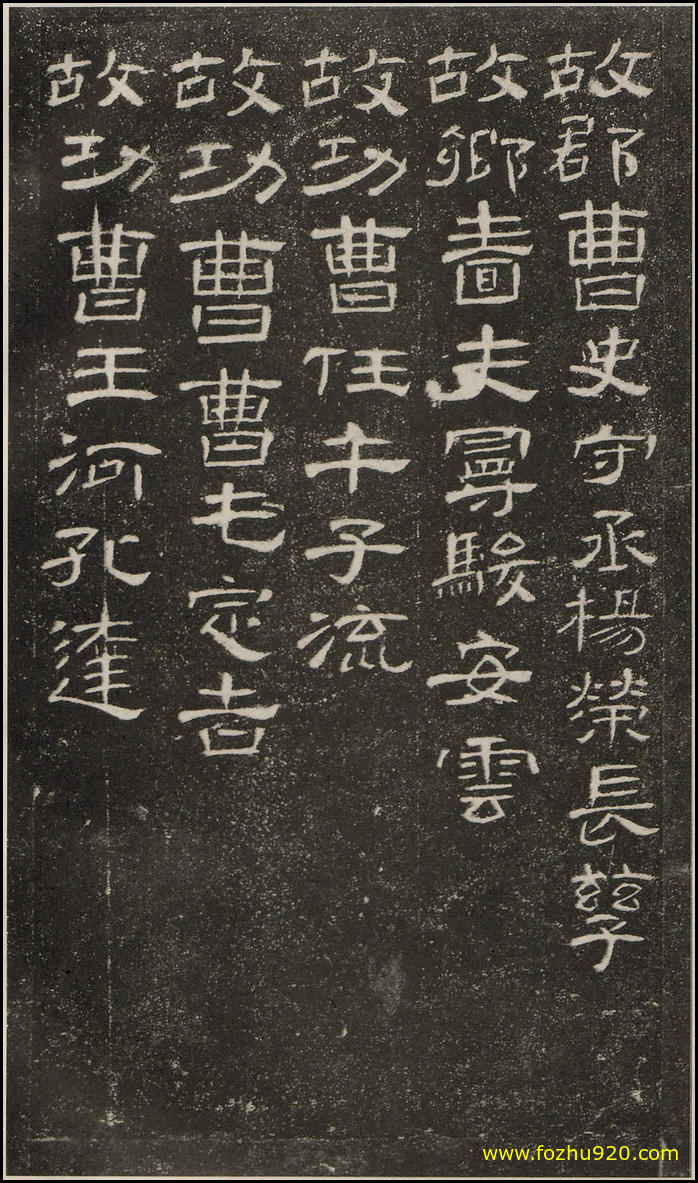 故郡曹史守丞楊榮長孳
故鄉嗇夫㝷駿安雲
故功曹任午子流
故功曹曹屯定吉
故功曹王河孔達
www.fozhu920.com